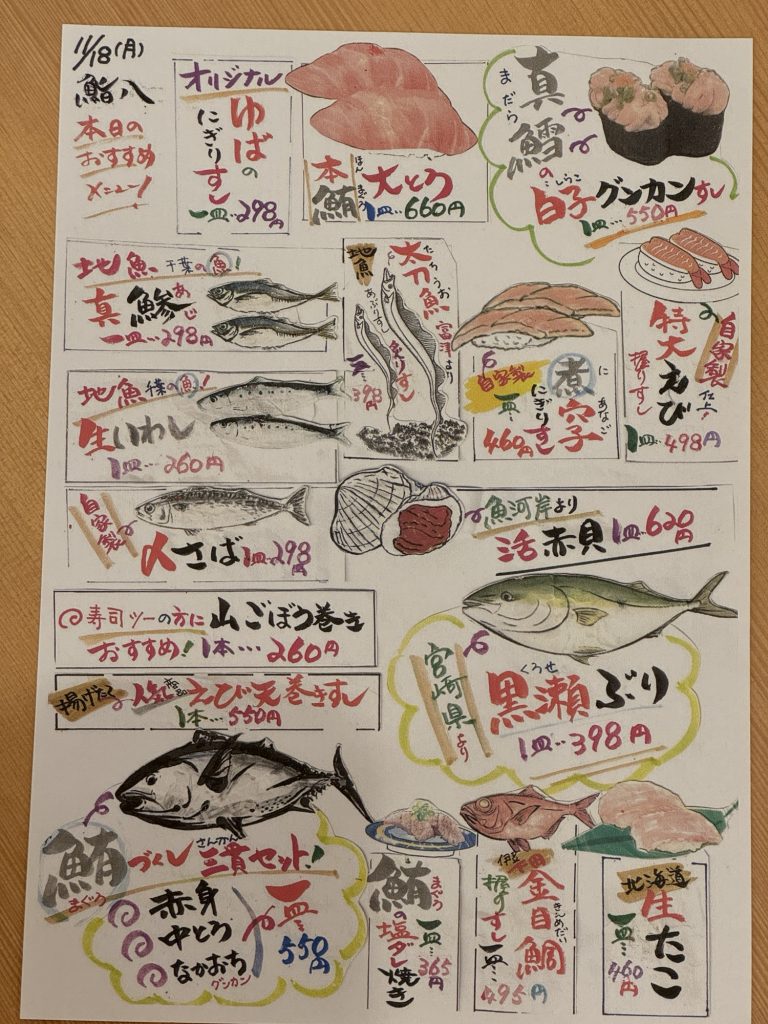 11/18(月)
鮨八
本日の
おすすめ
メニュー!
オリジナル
ゆばの
にぎりすし
一皿…298円
本鮪
ほんまぐろ
大とろ
1皿…660円
真鱈の
まだら
白子グンカンすし
しらこ
1皿…550円
地魚 千葉の魚!
真鯵
あじ
一皿…298円
地魚
太刀魚
たちうお
富津より
あぶりすし
炙りすし
一皿…398円
自家製
煮穴子
に あなご
にぎりすし
一皿…460円
自家製
仕立
特大えび
握りすし
1皿…498円
地魚 千葉の魚!
生いわし
1皿…260円
自家製
〆さば 1皿…298円
魚河岸より
活赤貝 1皿…620円
寿司ツーの方に
おすすめ!
山ごぼう巻き
1本…260円
揚げたく
人気商品
えび天巻きすし
1本…550円
宮崎県より
くろせ
黒瀬ぶり
1皿…398円
鮪づくし
まぐろ
さんかん
三貫セット!
赤身
中とろ
なかおち
グンカン
一皿…
550円
鮪の塩ダレ焼き
まぐろ
一皿…365円
伊豆下田
金目鯛
きんめだい
握りすし
一皿…495円
北海道
生たこ
一皿…460円